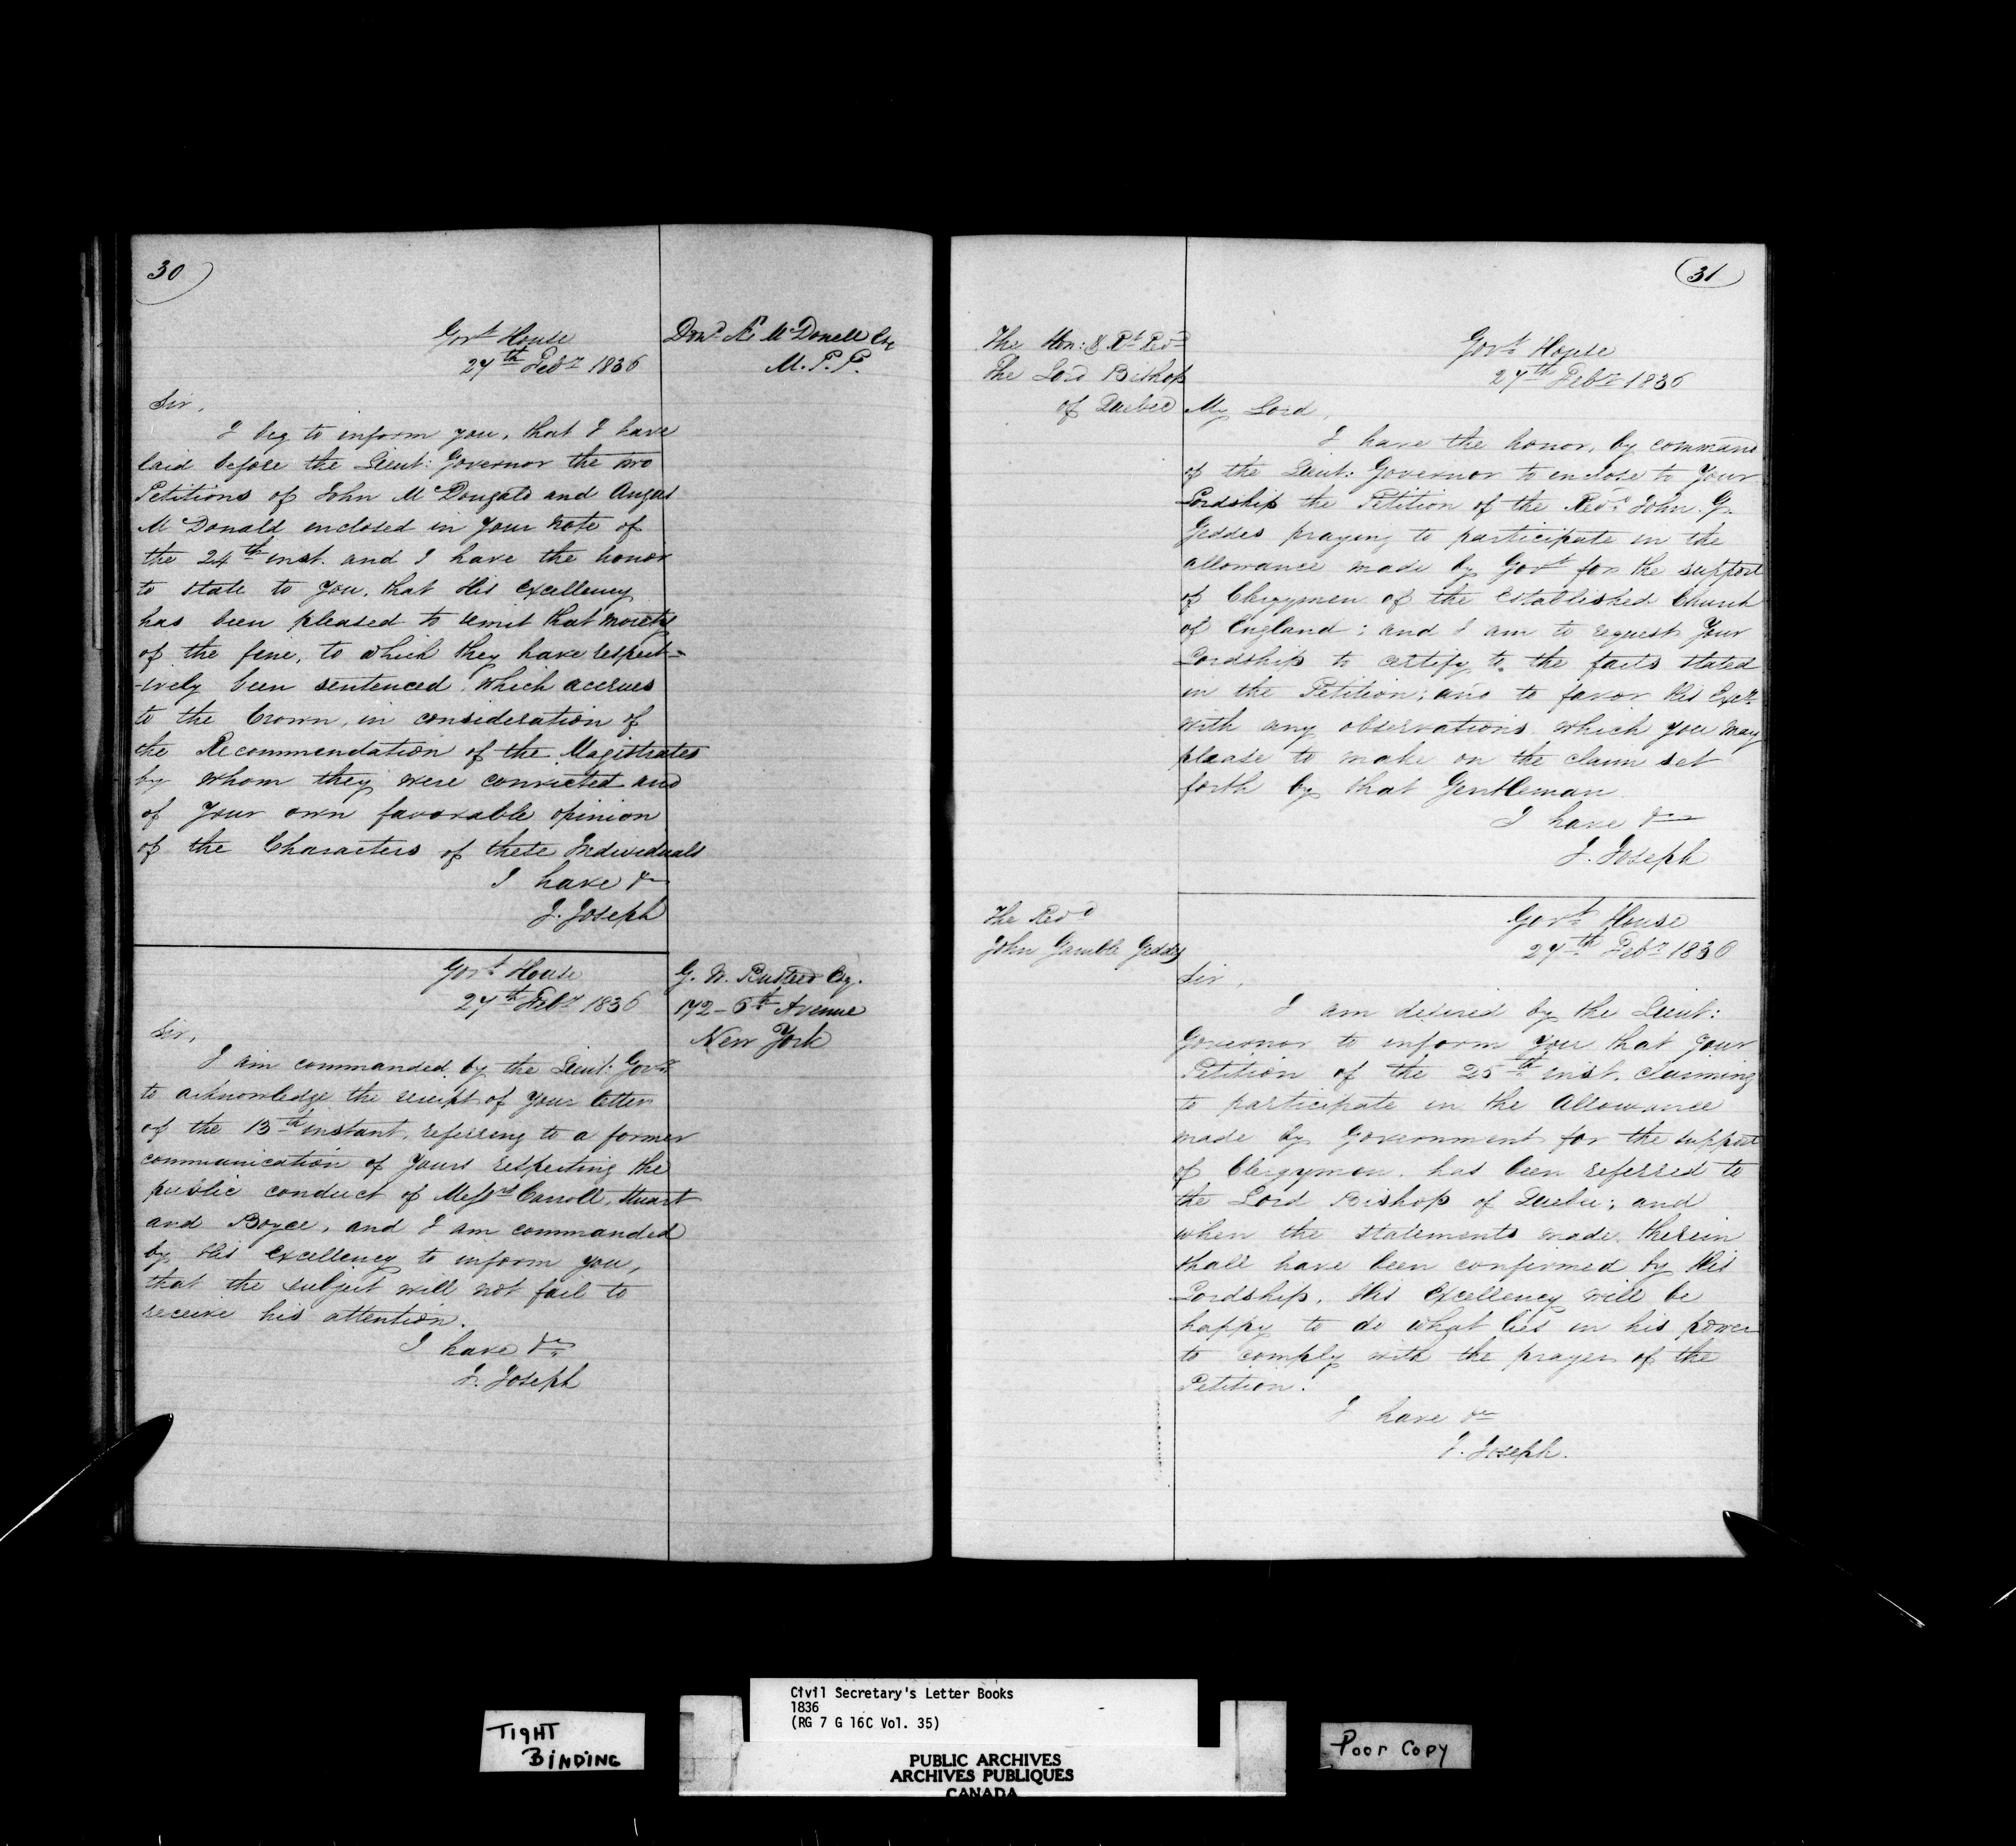 30
Govt. House
27th Feby 1836
Dond. Æs McDonell Esq
M.P.P.
Sir,
I beg to inform you, that I have
laid before the Lieut: Governor the two
Petitions of John McDougald and Angus
McDonald enclosed in your note of
the 24th inst. and I have the honor
to state to you, that His Excellency
has been pleased to remit that moiety
of the fine, to which they have respect=
-ively been sentenced, which accrues
to the Crown, in consideration of
the Recommendation of the Magistrates
by whom they were convicted and
of your own favorable opinion
of the Characters of these Individuals
I have &c
J. Joseph
Govt. House
27th Feby 1836
G. N. Busteed Esq.
172 - 6th Avenue
New York
Sir,
I am commanded by the Lieut: Govr.
to acknowledge the receipt of your letter
of the 13th instant, referring to a former
communication of yours respecting the
public conduct of Messrs Carroll, Stuart
and Boyce, and I am commanded
by His Excellency to inform you,
that the subject will not fail to
receive his attention.
I have &c
J. Joseph
31
The Hon: & Rt. Revd
The Lord Bishop
of Quebec
Govt. House
27th Feby 1836
My Lord,
I have the honor, by command
of the Lieut: Governor to enclose to Your
Lordship the Petition of the Revd. John. G.
Geddes praying to participate in the
allowance made by Govt. for the support
of Clergymen of the Established Church
of England; and I am to request Your
Lordship to certify to the facts stated
in the Petition; and to favor His Excy.
with any observations which you may
please to make on the claim set
forth by that Gentleman
I have &c
J. Joseph
The Revd
John Gamble Geddes
Govt. House
27th Feby 1836
Sir,
I am desired by the Lieut:
Governor to inform you that your
Petition of the 25th inst. claiming
to participate in the Allowance
made by Government for the support
of Clergymen, has been referred to
the Lord Bishop of Quebec; and
when the statements made therein
shall have been confirmed by His
Lordship, His Excellency will be
happy to do what lies in his power
to comply with the prayer of the
Petition.
I have &c
J. Joseph.
TIGHT
BINDING
Civil Secretary's Letter Books
1836
(RG 7 G 16C Vol. 35)
PUBLIC ARCHIVES
ARCHIVES PUBLIQUES
CANADA
Poor Copy